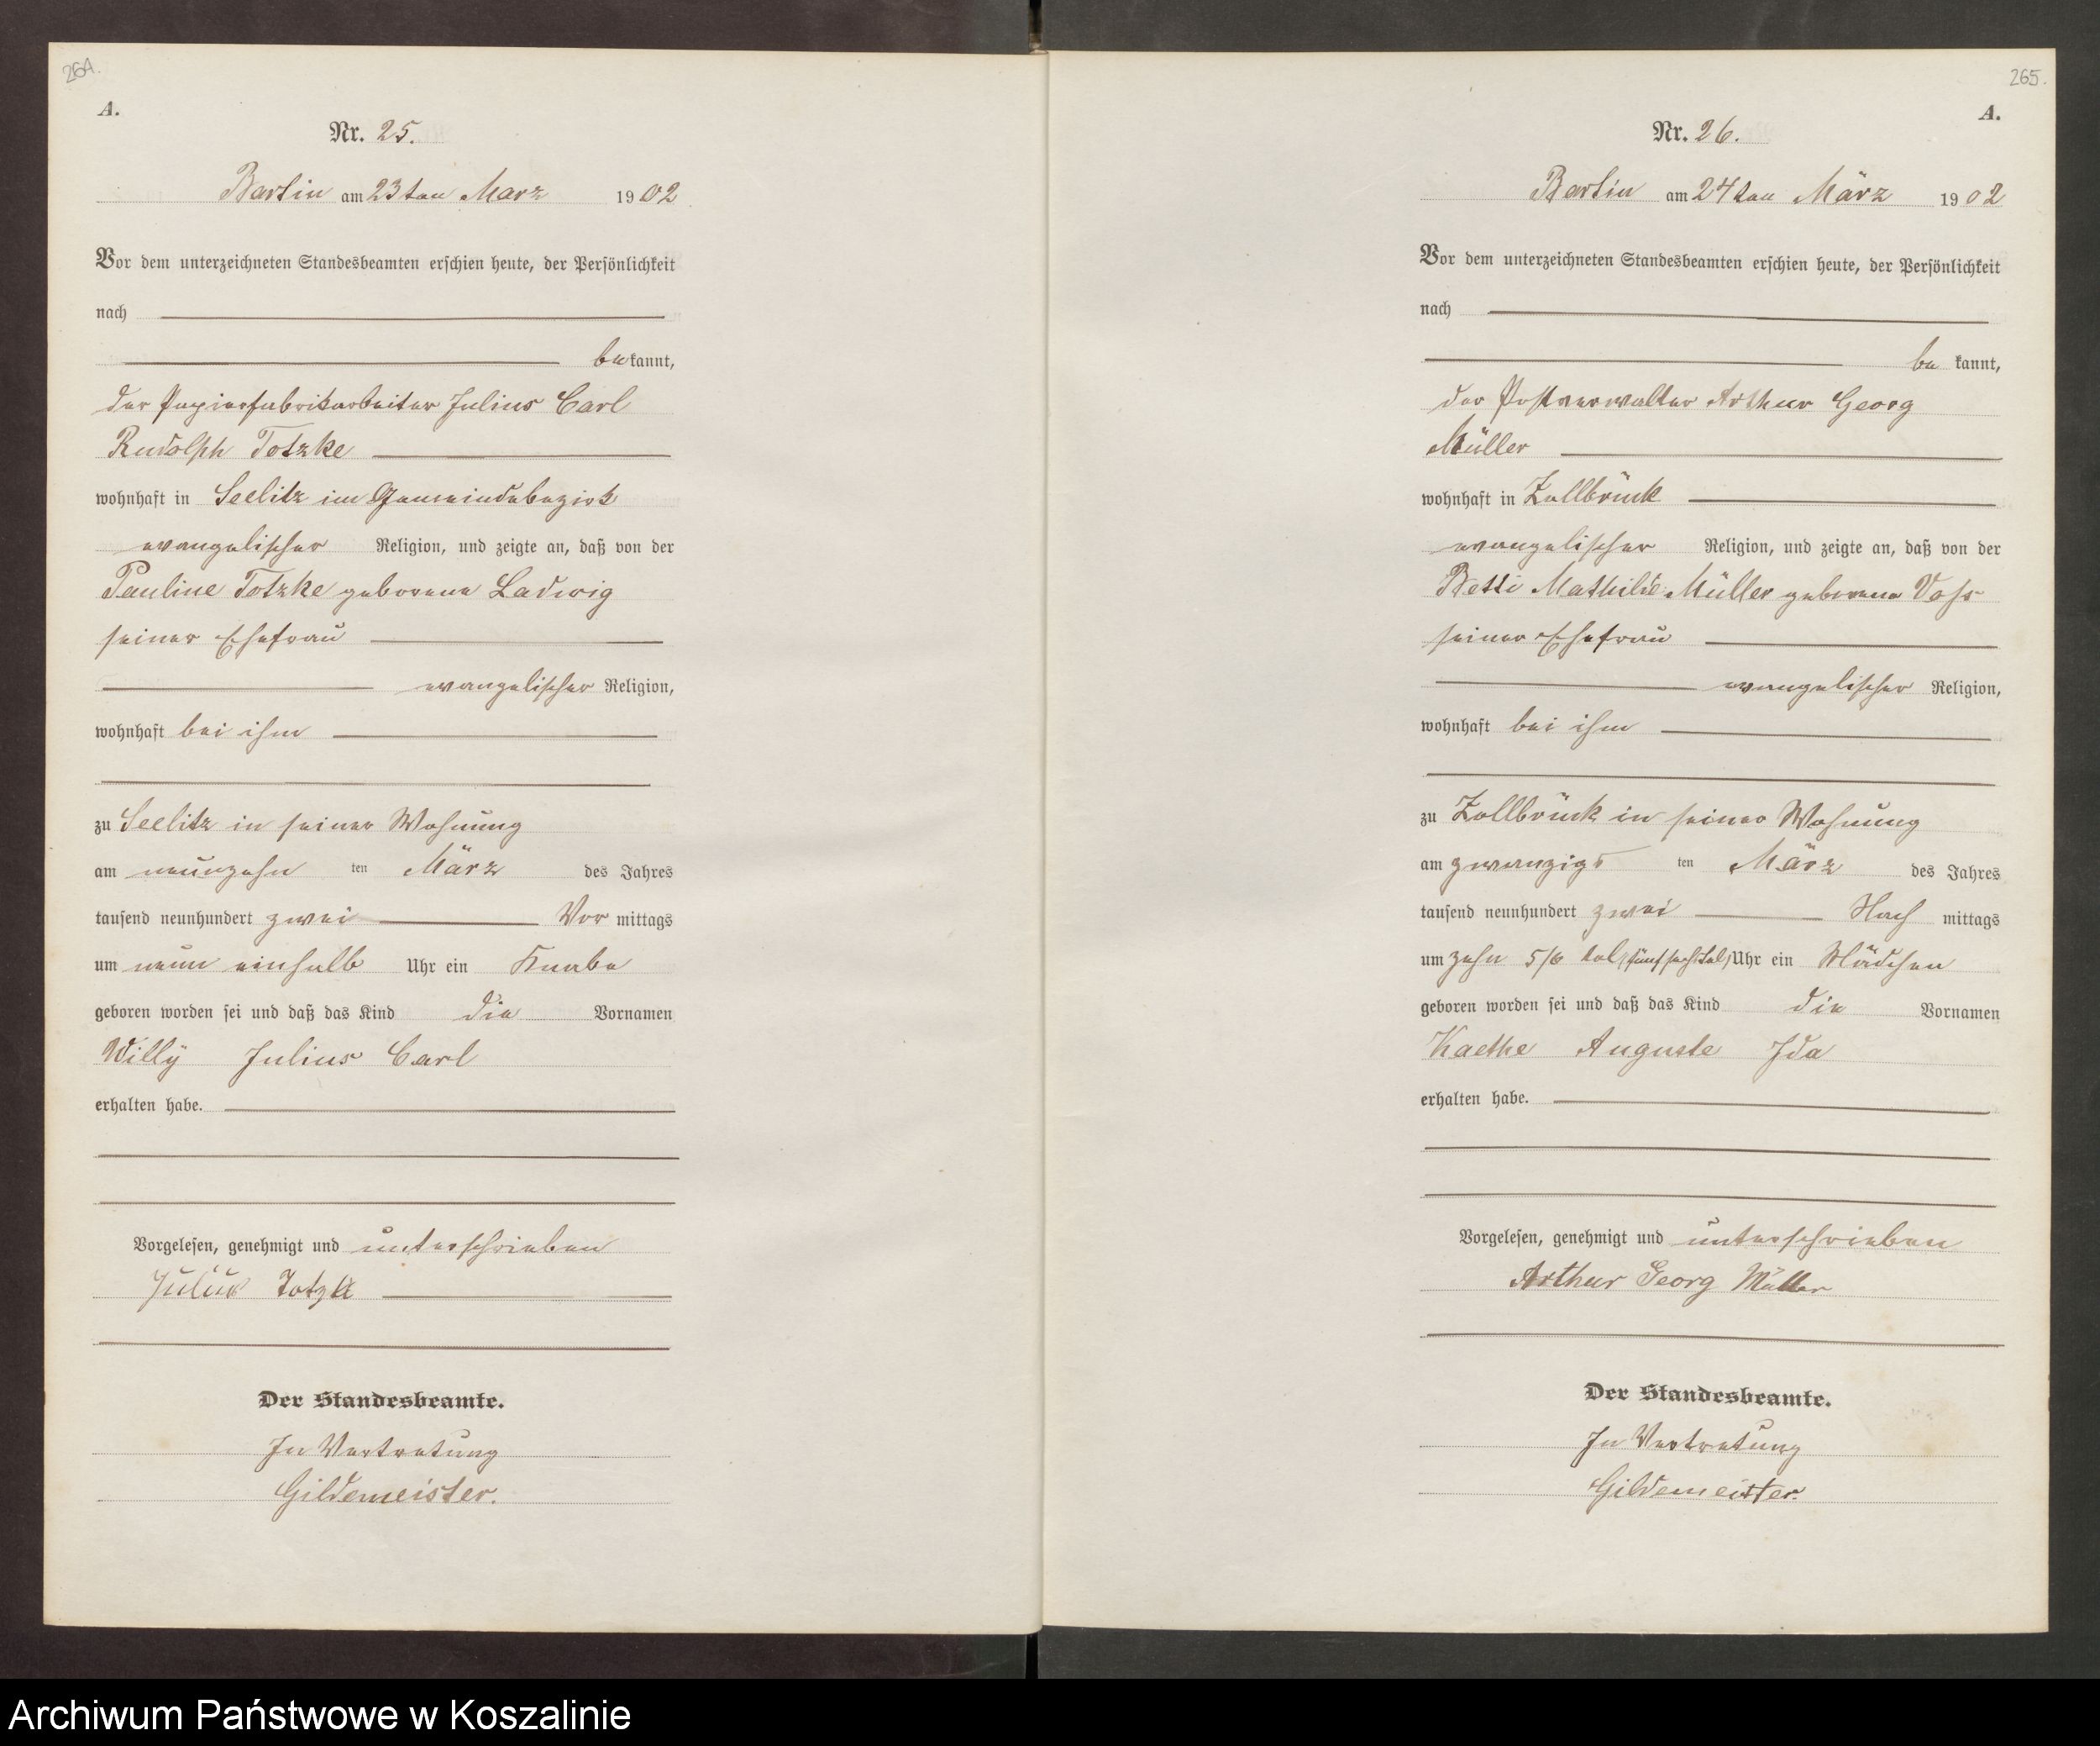 264.
A.
Nr. 25.
Bartin am 23ten Marz 1902
Vor dem unterzeichneten Standesbeamten erschien heute, der Persönlichkeit
nach
bekannt,
der Papierfabrikarbeiter Julius Carl
Rudolph Totzke
wohnhaft in Seelitz im Gemeindebezirk
evangelischer Religion, und zeigte an, daß von der
Pauline Totzke geborene Ladwig
seiner Ehefrau
evangelischer Religion,
wohnhaft bei ihm
zu Seelitz in seiner Wohnung
am neunzehn ten März des Jahres
tausend neunhundert zwei Vor mittags
um neun einhalb Uhr ein Knabe
geboren worden sei und daß das Kind die Vornamen
Willy Julius Carl
erhalten habe.
Vorgelesen, genehmigt und unterschrieben
Julius Totzke
Der Standesbeamte.
In Vertretung
Gildemeister.
265.
A.
Nr. 26.
Bartin am 24ten März 1902
Vor dem unterzeichneten Standesbeamten erschien heute, der Persönlichkeit
nach
be kannt,
der Postverwalter Arthur Georg
Müller
wohnhaft in Zollbrück
evangelischer Religion, und zeigte an, daß von der
Betti Mathilde Müller geborene Voss
seiner Ehefrau
evangelischer Religion,
wohnhaft bei ihm
zu Zollbrück in seiner Wohnung
am zwanzigs ten März des Jahres
tausend neunhundert zwei Nach mittags
um zehn 5/6 tel /fünf sechstel/ Uhr ein Mädchen
geboren worden sei und daß das Kind die Vornamen
Kaethe Auguste Ida
erhalten habe.
Vorgelesen, genehmigt und unterschrieben
Arthur Georg Müller
Der Standesbeamte.
In Vertretung
Gildemeister.
Archiwum Państwowe w Koszalinie